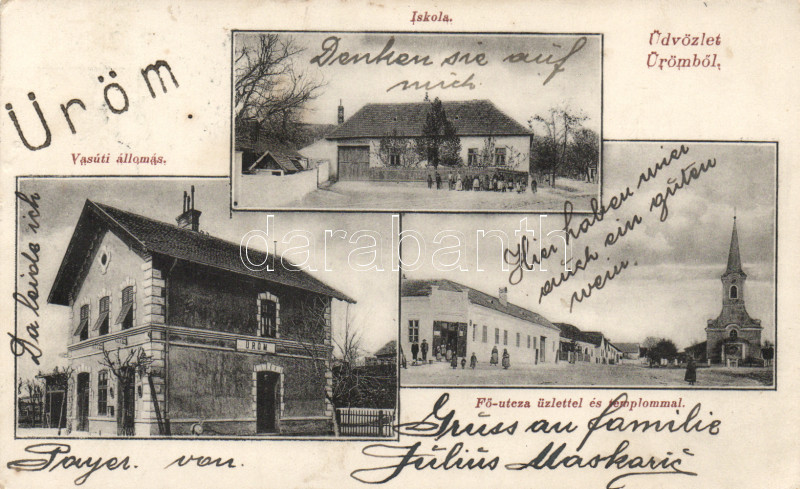 Iskola.
Üdvözlet
Ürömből,
Üröm
Denken sie auf
mich.
Vasúti állomás.
Hier haben wier
auch ein guten
wein.
Da leide ich
ÜRÖM
darabanth.com
Fő-utcza üzlettel és templommal.
Gruss an familie
Payer. von. Július Maskarič